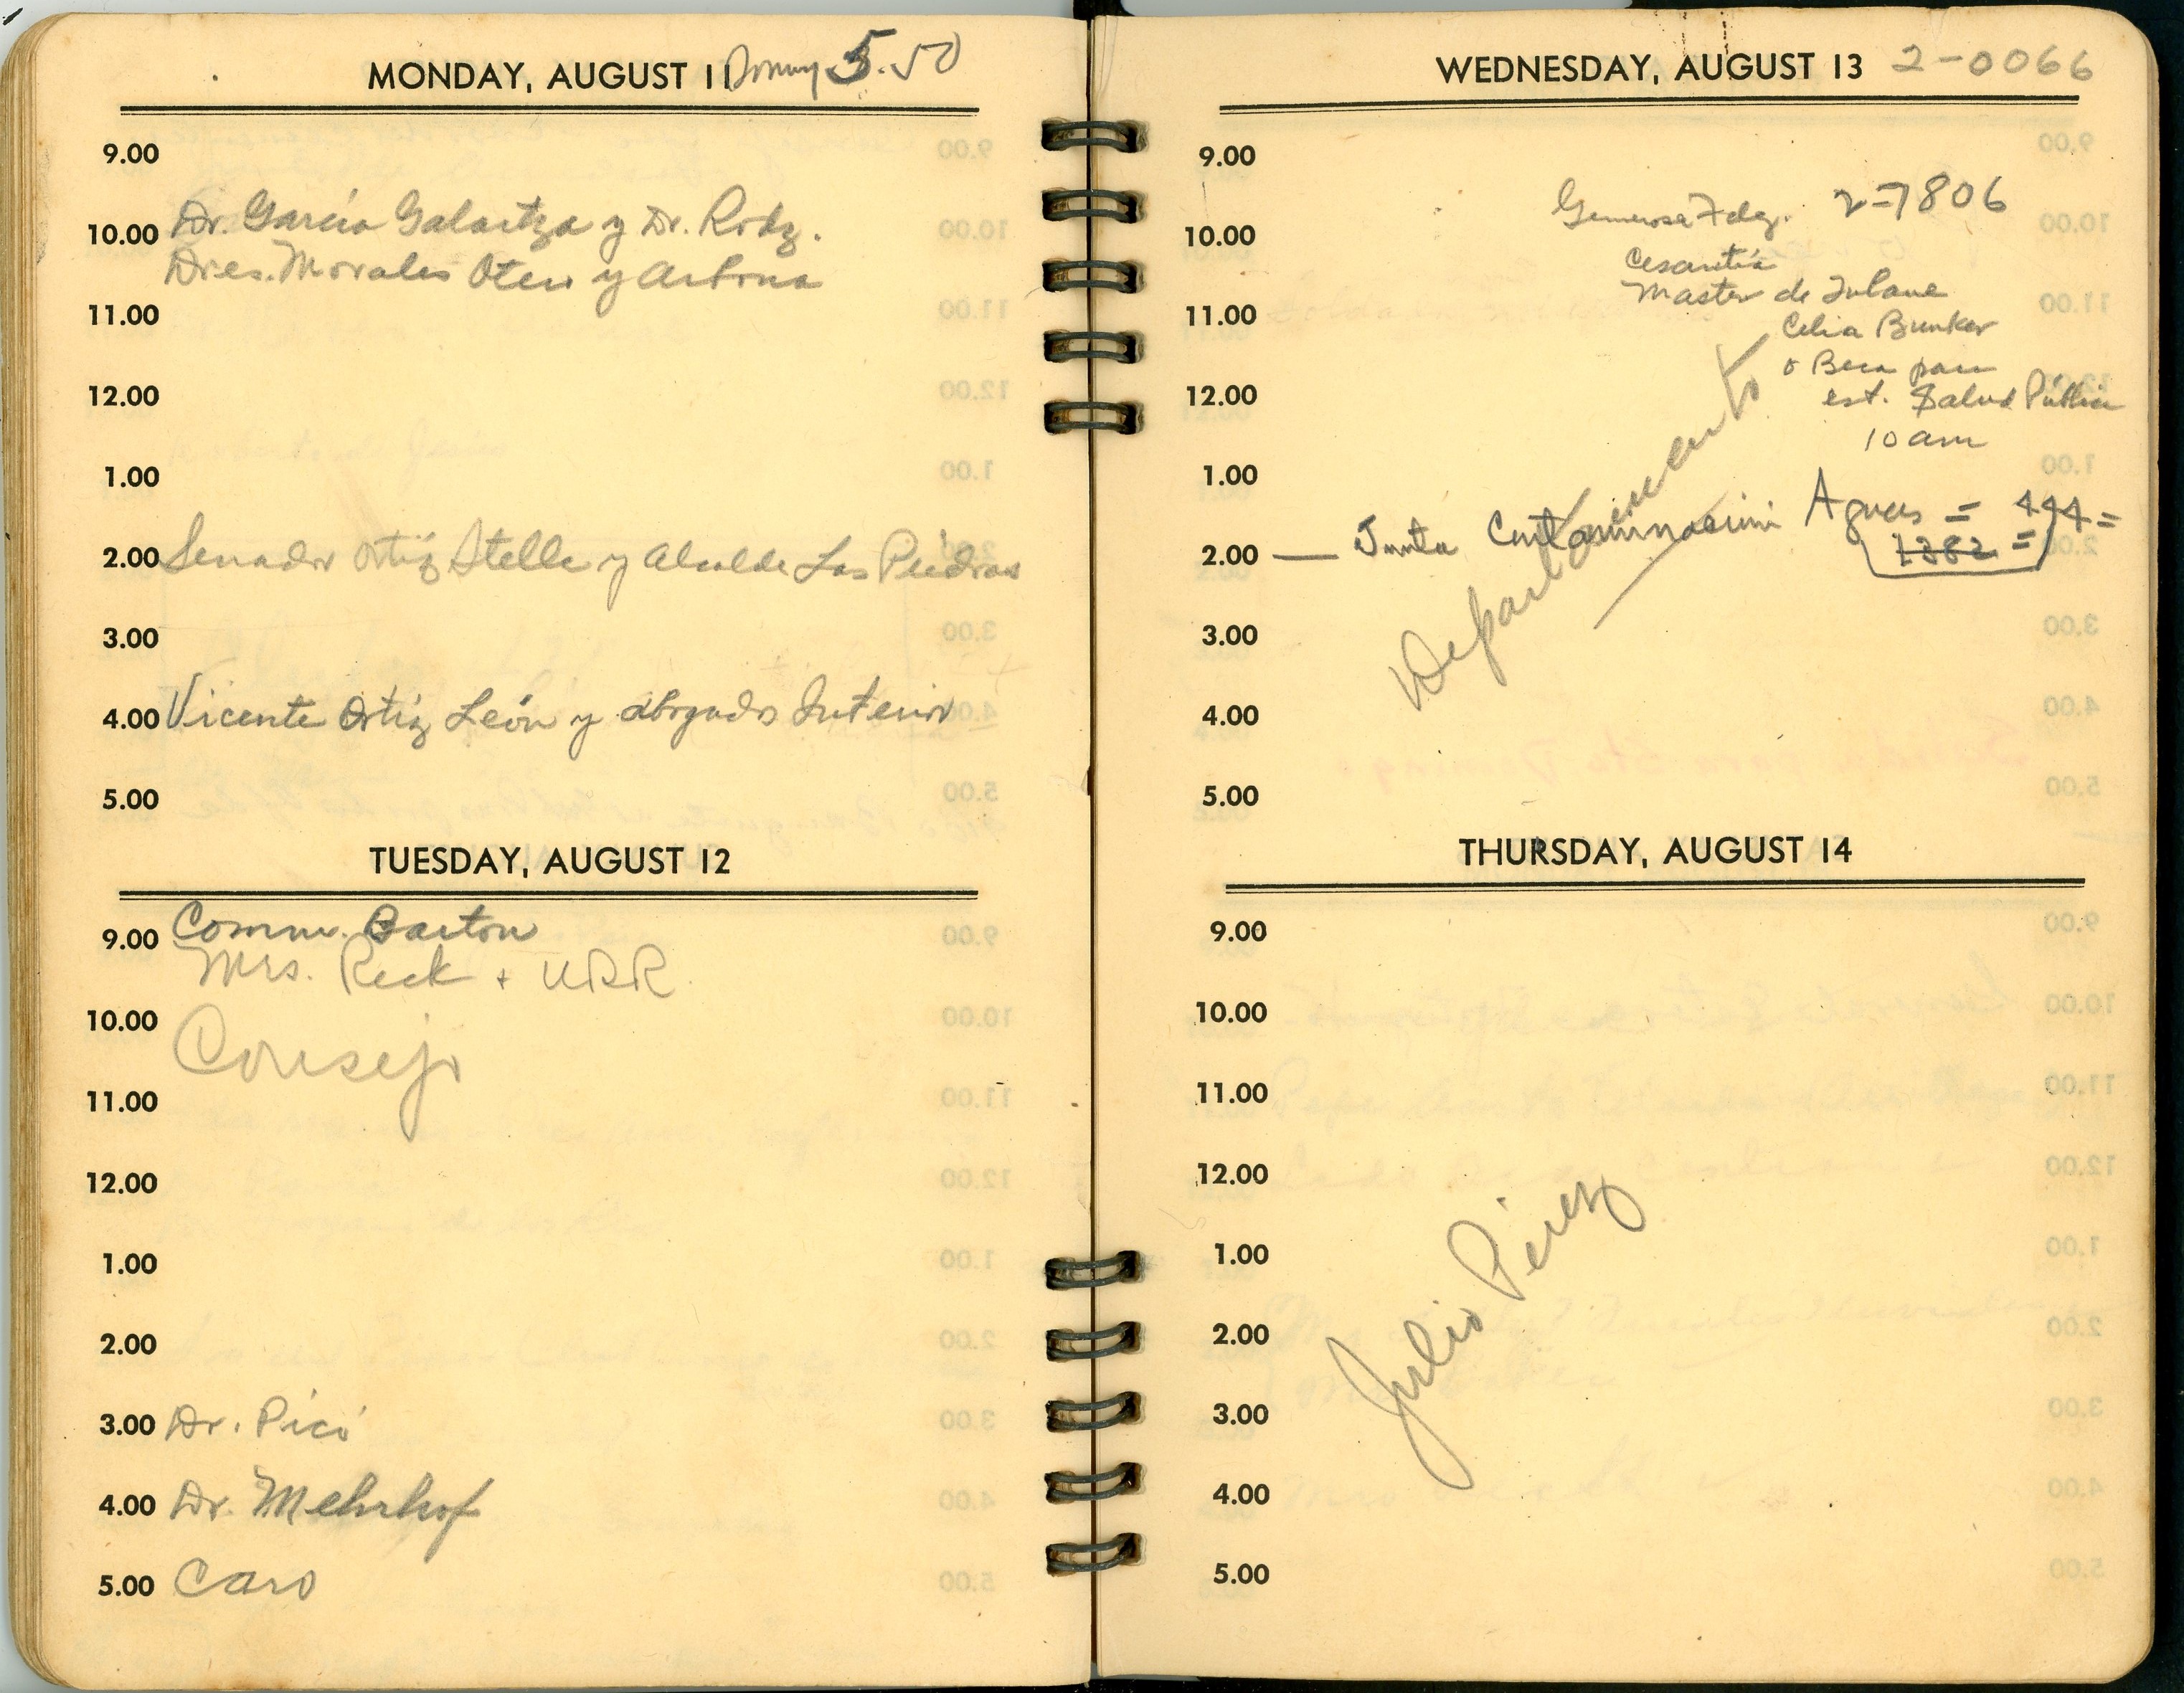 MONDAY, AUGUST 11 5.50
9.00
10.00 Dr. García Galartza y Dr. Rodz.
Dres. Morales Otero y Arbona
11.00
12.00
1.00
2.00 Senador Ortiz Stella y Alcalde Las Piedras
3.00
4.00 Vicente Ortiz León y abogado Interior
5.00
TUESDAY, AUGUST 12
9.00 Comm. Barton
Mrs. Reck + URR.
10.00 Consejo
11.00
12.00
1.00
2.00
3.00 Dr. Picó
4.00 Dr. Mehrhof
5.00 Caro
WEDNESDAY, AUGUST 13 2-0066
9.00
Generosa Fdez. 2-7806
10.00
Cesantía
Master de Tulane
11.00
Celia Bunker
o Beca para
12.00
est. Salud Pública
10 am
1.00
Departamento
2.00 — Junta Contaminación Aguas = 444 =
1382 =
3.00
4.00
5.00
THURSDAY, AUGUST 14
9.00
10.00
11.00
12.00
1.00
Julio Pérez
2.00
3.00
4.00
5.00